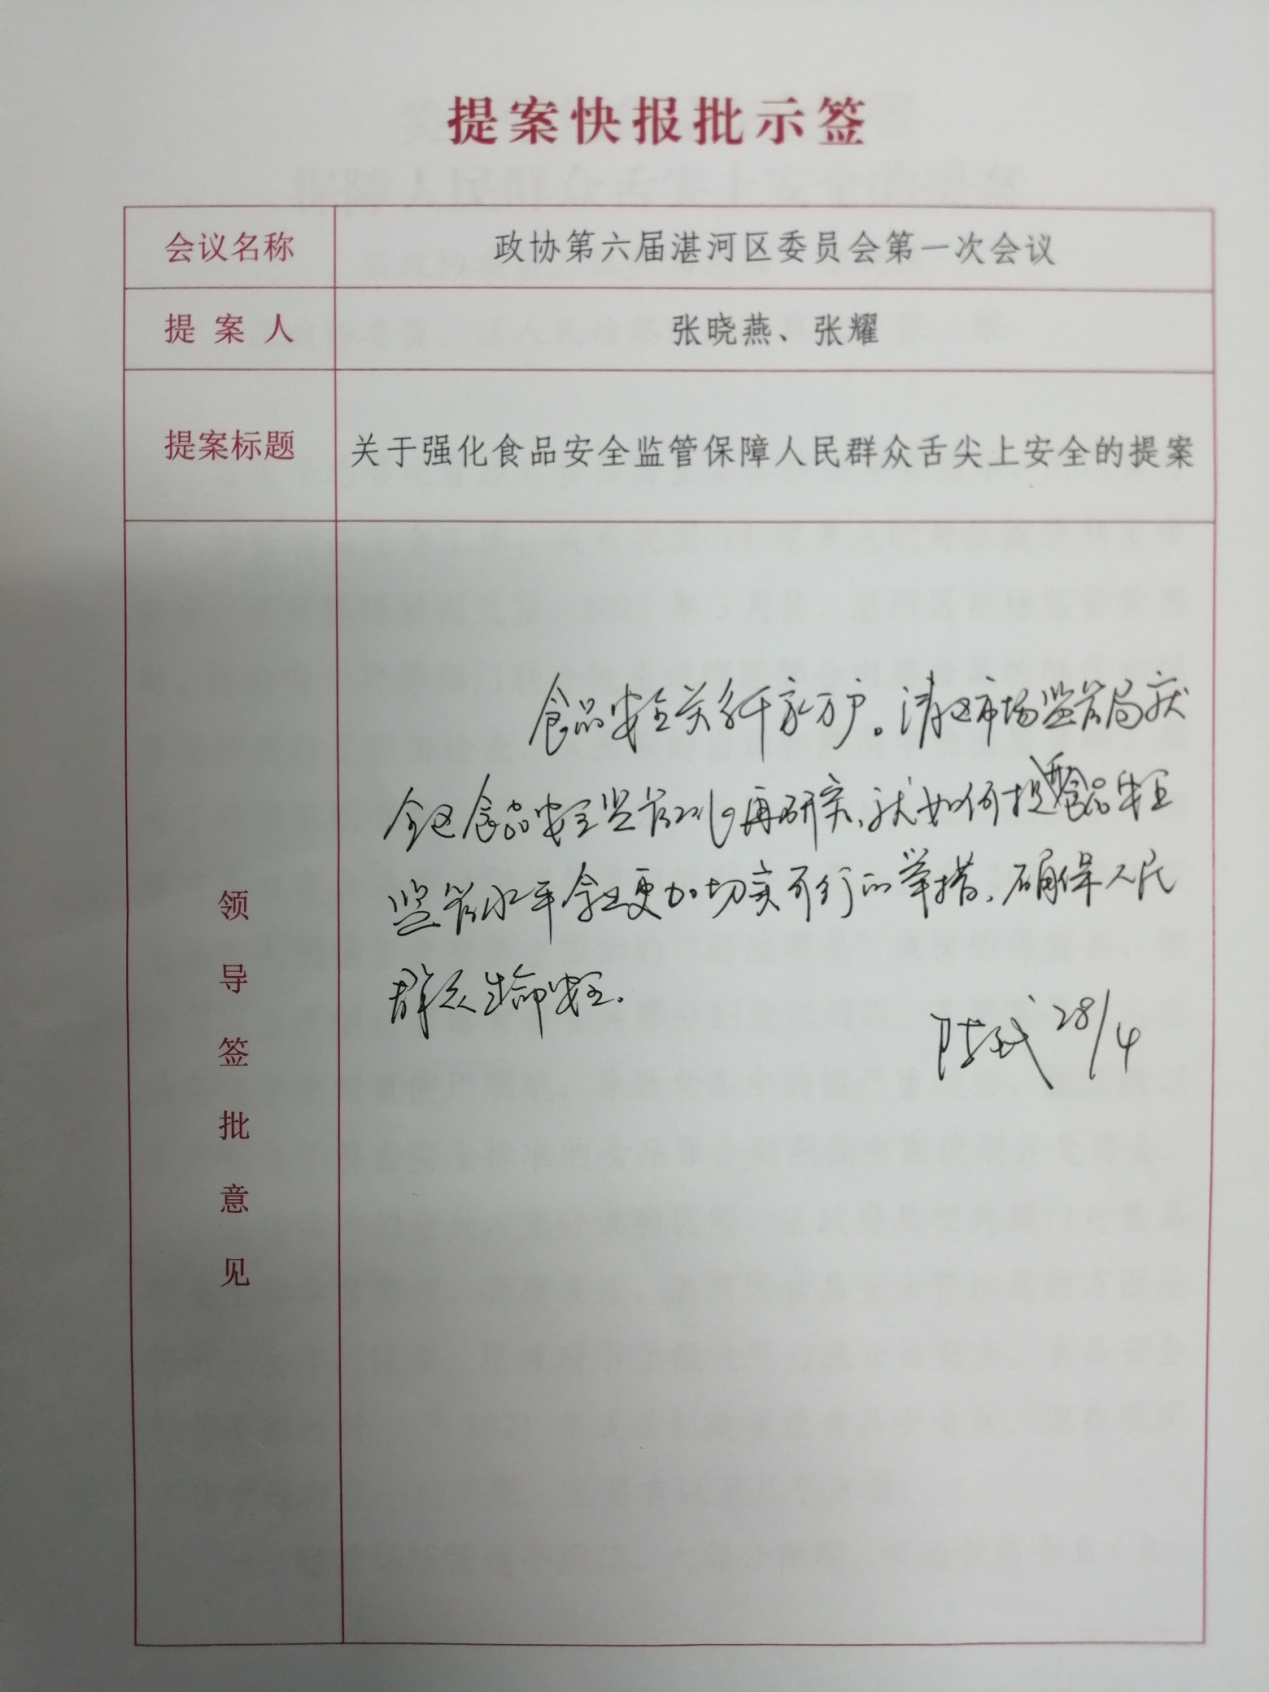 提案快报批示签
会议名称 政协第六届湛河区委员会第一次会议
提案人 张晓燕、张耀
提案标题 关于强化食品安全监管保障人民群众舌尖上安全的提案
领导签批意见
食品安全关系千家万户。请区市场监管局就
全区食品安全监管现状再研究,就如何提升食品安全
监管水平拿出更加切实可行的举措,确保人民
群众生命安全。
28/4